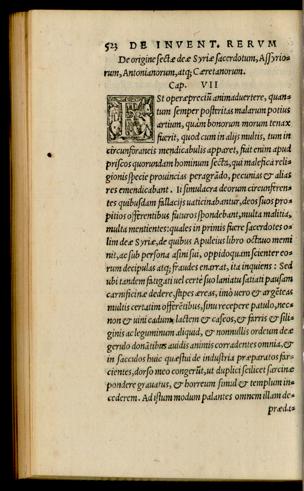 523 DE INVENT. RERVM
De origine sectæ deæ Syriæ sacerdotum, Assyrio-
rum, Antonianorum, atq; Cæretanorum.
Cap. VII
Est operæpreciũ animaduertere, quan-
tum semper posteritas malarum potius
artium, quàm bonorum morum tenax
fuerit, quod cum in alijs multis, tum in
circunforaneis mendicabulis apparet, fuit enim apud
priscos quorundam hominum secta, qui malefica reli-
gionis specie prouincias peragrãdo, pecunias & alias
res emendicabant. Ii simulacra deorum circunferen-
tes quibusdam fallacijs uaticinabantur, deos suos pro-
pitios offerentibus futuros spondebant, multa malitia,
multa mentientes: quales in primis fuere sacerdotes o-
lim deæ Syriæ, de quibus Apuleius libro octauo memi
nit, ac sub persona asini sui, oppidoquam scienter eo-
rum decipulas atq; fraudes enarrat, ita inquiens: Sed
ubi tandem fatigati uel certè suo laniatu satiati pausam
carnificinæ dedere, stipes æreas, imò uero & argẽteas
multis certatim offerẽtibus, sinu recepere patulo, nec-
non & uini cadum, lactem & caseos, & farris & sili-
ginis ac leguminum aliquid, & nonnullis ordeum deæ
gerulo donãtibus auidis animis corradentes omnia, &
in sacculos huic quæstui de industria præparatos far-
cientes, dorso meo congerũt, ut duplici scilicet sarcinæ
pondere grauatus, & horreum simul & templum in-
cederem. Ad istum modum palantes omnem illam de-
præda-